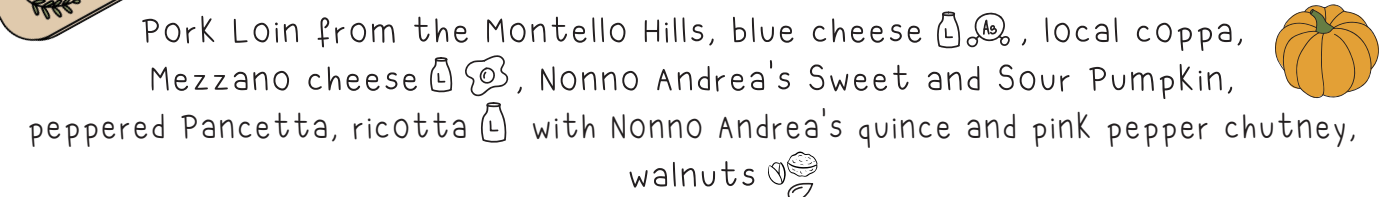 Pork Loin from the Montello Hills, blue cheese L As, local coppa,
Mezzano cheese L, Nonno Andrea's Sweet and Sour Pumpkin,
peppered Pancetta, ricotta L with Nonno Andrea's quince and pink pepper chutney,
walnuts